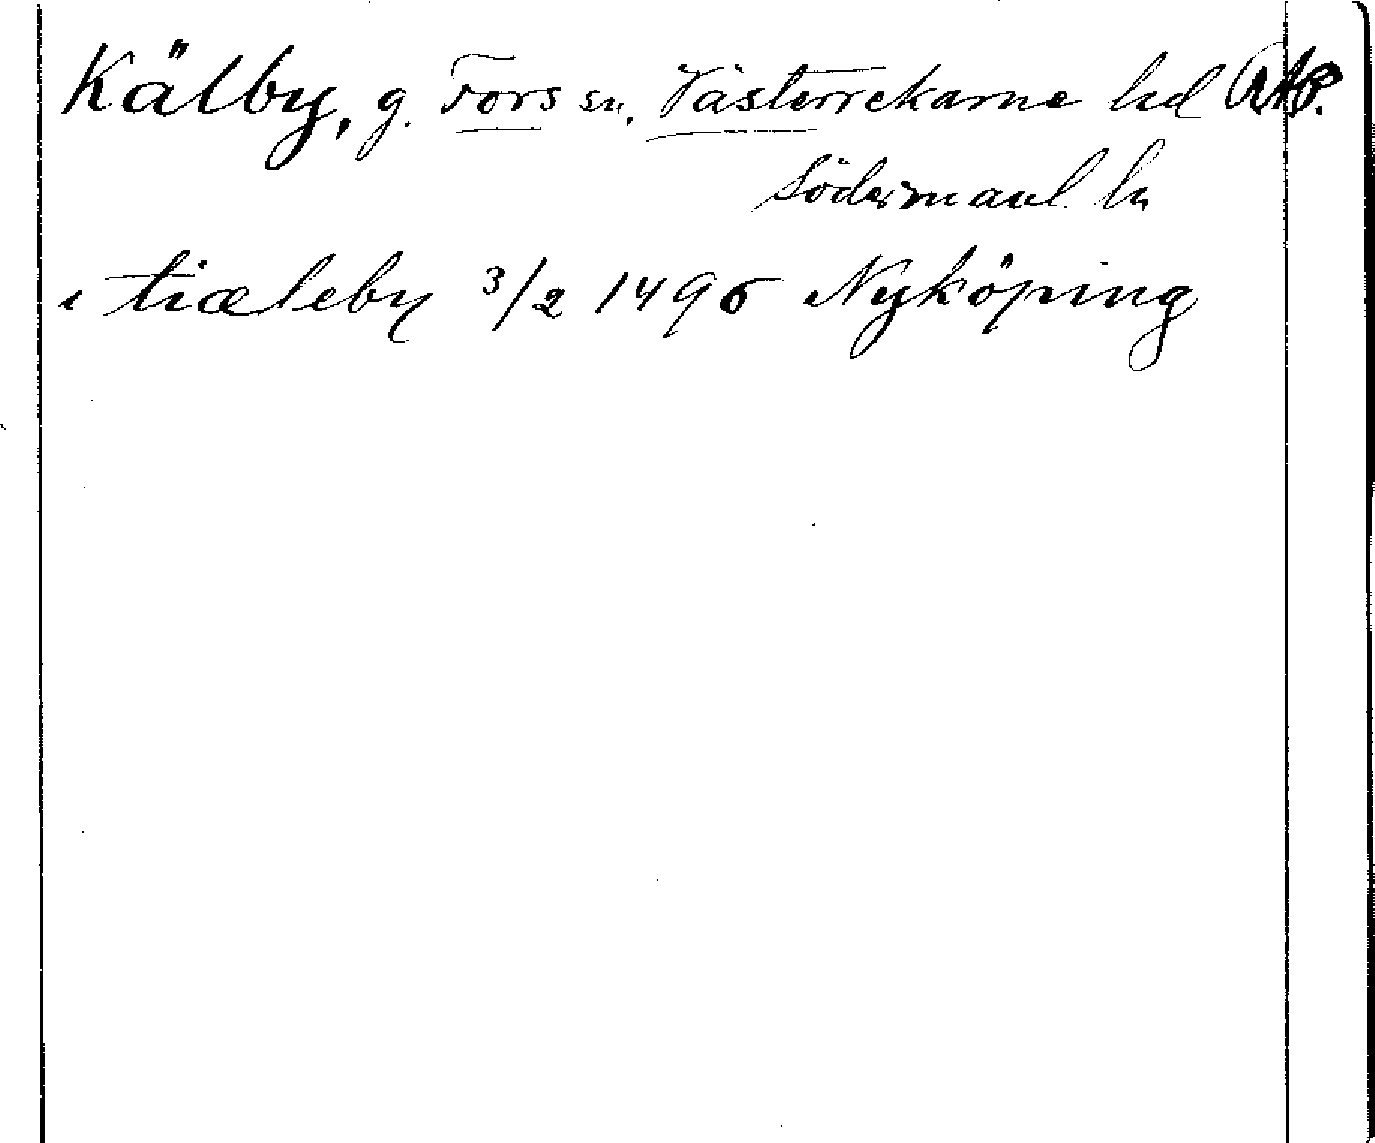 Kälby, g. Fors sn. Västerrekarne hd
Södermanl. ln
i tiæleby 3/2 1496 Nyköping